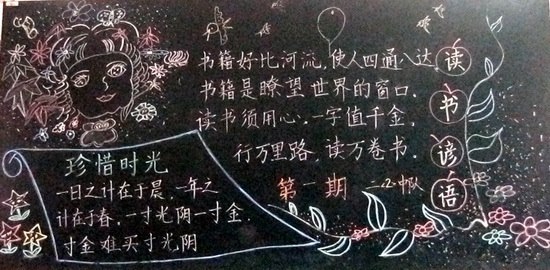 书籍好比河流,使人四通八达.
书籍是瞭望世界的窗口.
读书须用心,一字值千金.
行万里路,读万卷书.
读书谚语
第一期 二.2中队
珍惜时光
一日之计在于晨,一年之
计在于春,一寸光阴一寸金.
寸金难买寸光阴